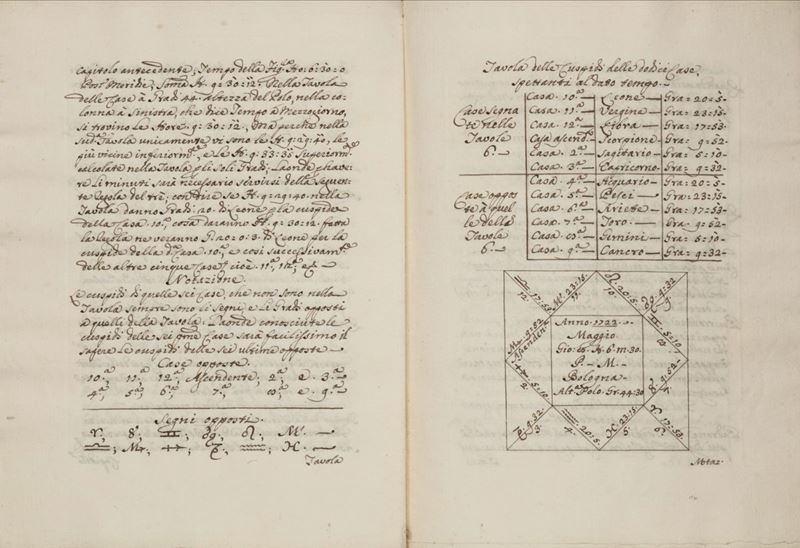 capitolo antecedente; Tempo della Fig.ª Ho: 0: 30: 0
Post Meridie, Soma H. 9: 30: 12. Nella Tavola
delle Case à Gradi 44. altezza del Polo, nella co-
lonna à Sinistra, che dice Tempo à Mezzogiorno,
si trovino le Hore. 9: 30: 12. Mà perche nella
Sud.ª Tavola unicamente vi sono le H. 9: 29: 40, le
più vicine inferiorm.e, e le H. 9: 33: 35 Superiorm.e
calcolate nella Tavola
re li minuti sarà necessario servirsi della Seguen-
te Regola del trè, con dire se H. 9: 29: 40. nella
Tavola danno Gradi: 20. di Leone p la cuspide
della Casa 10.ª cosa daranno H. 9: 30: 12. fatta
la Regola ne veranno G. 20: 0: 3. di Leone per la
cuspide della d.ª Casa 10.ª e così successivam.te
delle altre cinque Case cioè 11.ª 12.ª
Notazione.
Le cuspidi di quelle sei Case, che non sono nella
Tavola sempre sono li Segni, e li Gradi opposti
à quelle della Tavola. Laonde conosciute le
cuspidi delle sei prime Case sarà facilissimo il
sapere le cuspidi delle sei ultime opposte
Case opposte.
10.ª, 11.ª, 12.ª, Ascendente, 2.ª, e 3.ª
4.ª, 5.ª, 6.ª, 7.ª, 8.ª, e 9.ª
Segni opposti.
♈; ♉; ♊; ♋; ♌; ♍
♎; ♏; ♐; ♑; ♒; ♓
Tavola
Tavola delle Cuspidi delle dodici Case,
Spettanti al dato tempo.
Case segna
te nelle
Tavole
6.
Casa. 10.ª Leone Gra: 20: 5
Casa. 11.ª Vergine Gra: 23: 15
Casa. 12.ª Libra Gra: 17: 53
Casa ascend.e Scorpione Gra: 9: 52
Casa. 2.ª Sagitario Gra: 5: 10
Casa. 3.ª Capricorno Gra: 9: 32
Case oppos
te à quel
le della
Tavola
6.
Casa. 4.ª Aquario Gra: 20: 5
Casa. 5.ª Pesci Gra: 23: 15
Casa. 6.ª Ariete Gra: 17: 53
Casa. 7.ª Toro Gra: 9: 52
Casa. 8.ª Gemini Gra: 5: 10
Casa. 9.ª Cancro Gra: 9: 32
♎ 17: 53
12
♍ 23: 15
11
♌ 20: 5
10
♋ 9: 32
9
♏ 9: 52
Ascenden
♊ 5: 10
8
Anno. 1722.
Maggio
P. M.
Bologna
Alt.ª Polo. Gr. 44: 30
♐ 5: 10
2
♉ 9: 52
7
♑ 9: 32
3
♒ 20: 5
4
♓ 23: 15
5
♈ 17: 53
6
Notaz.